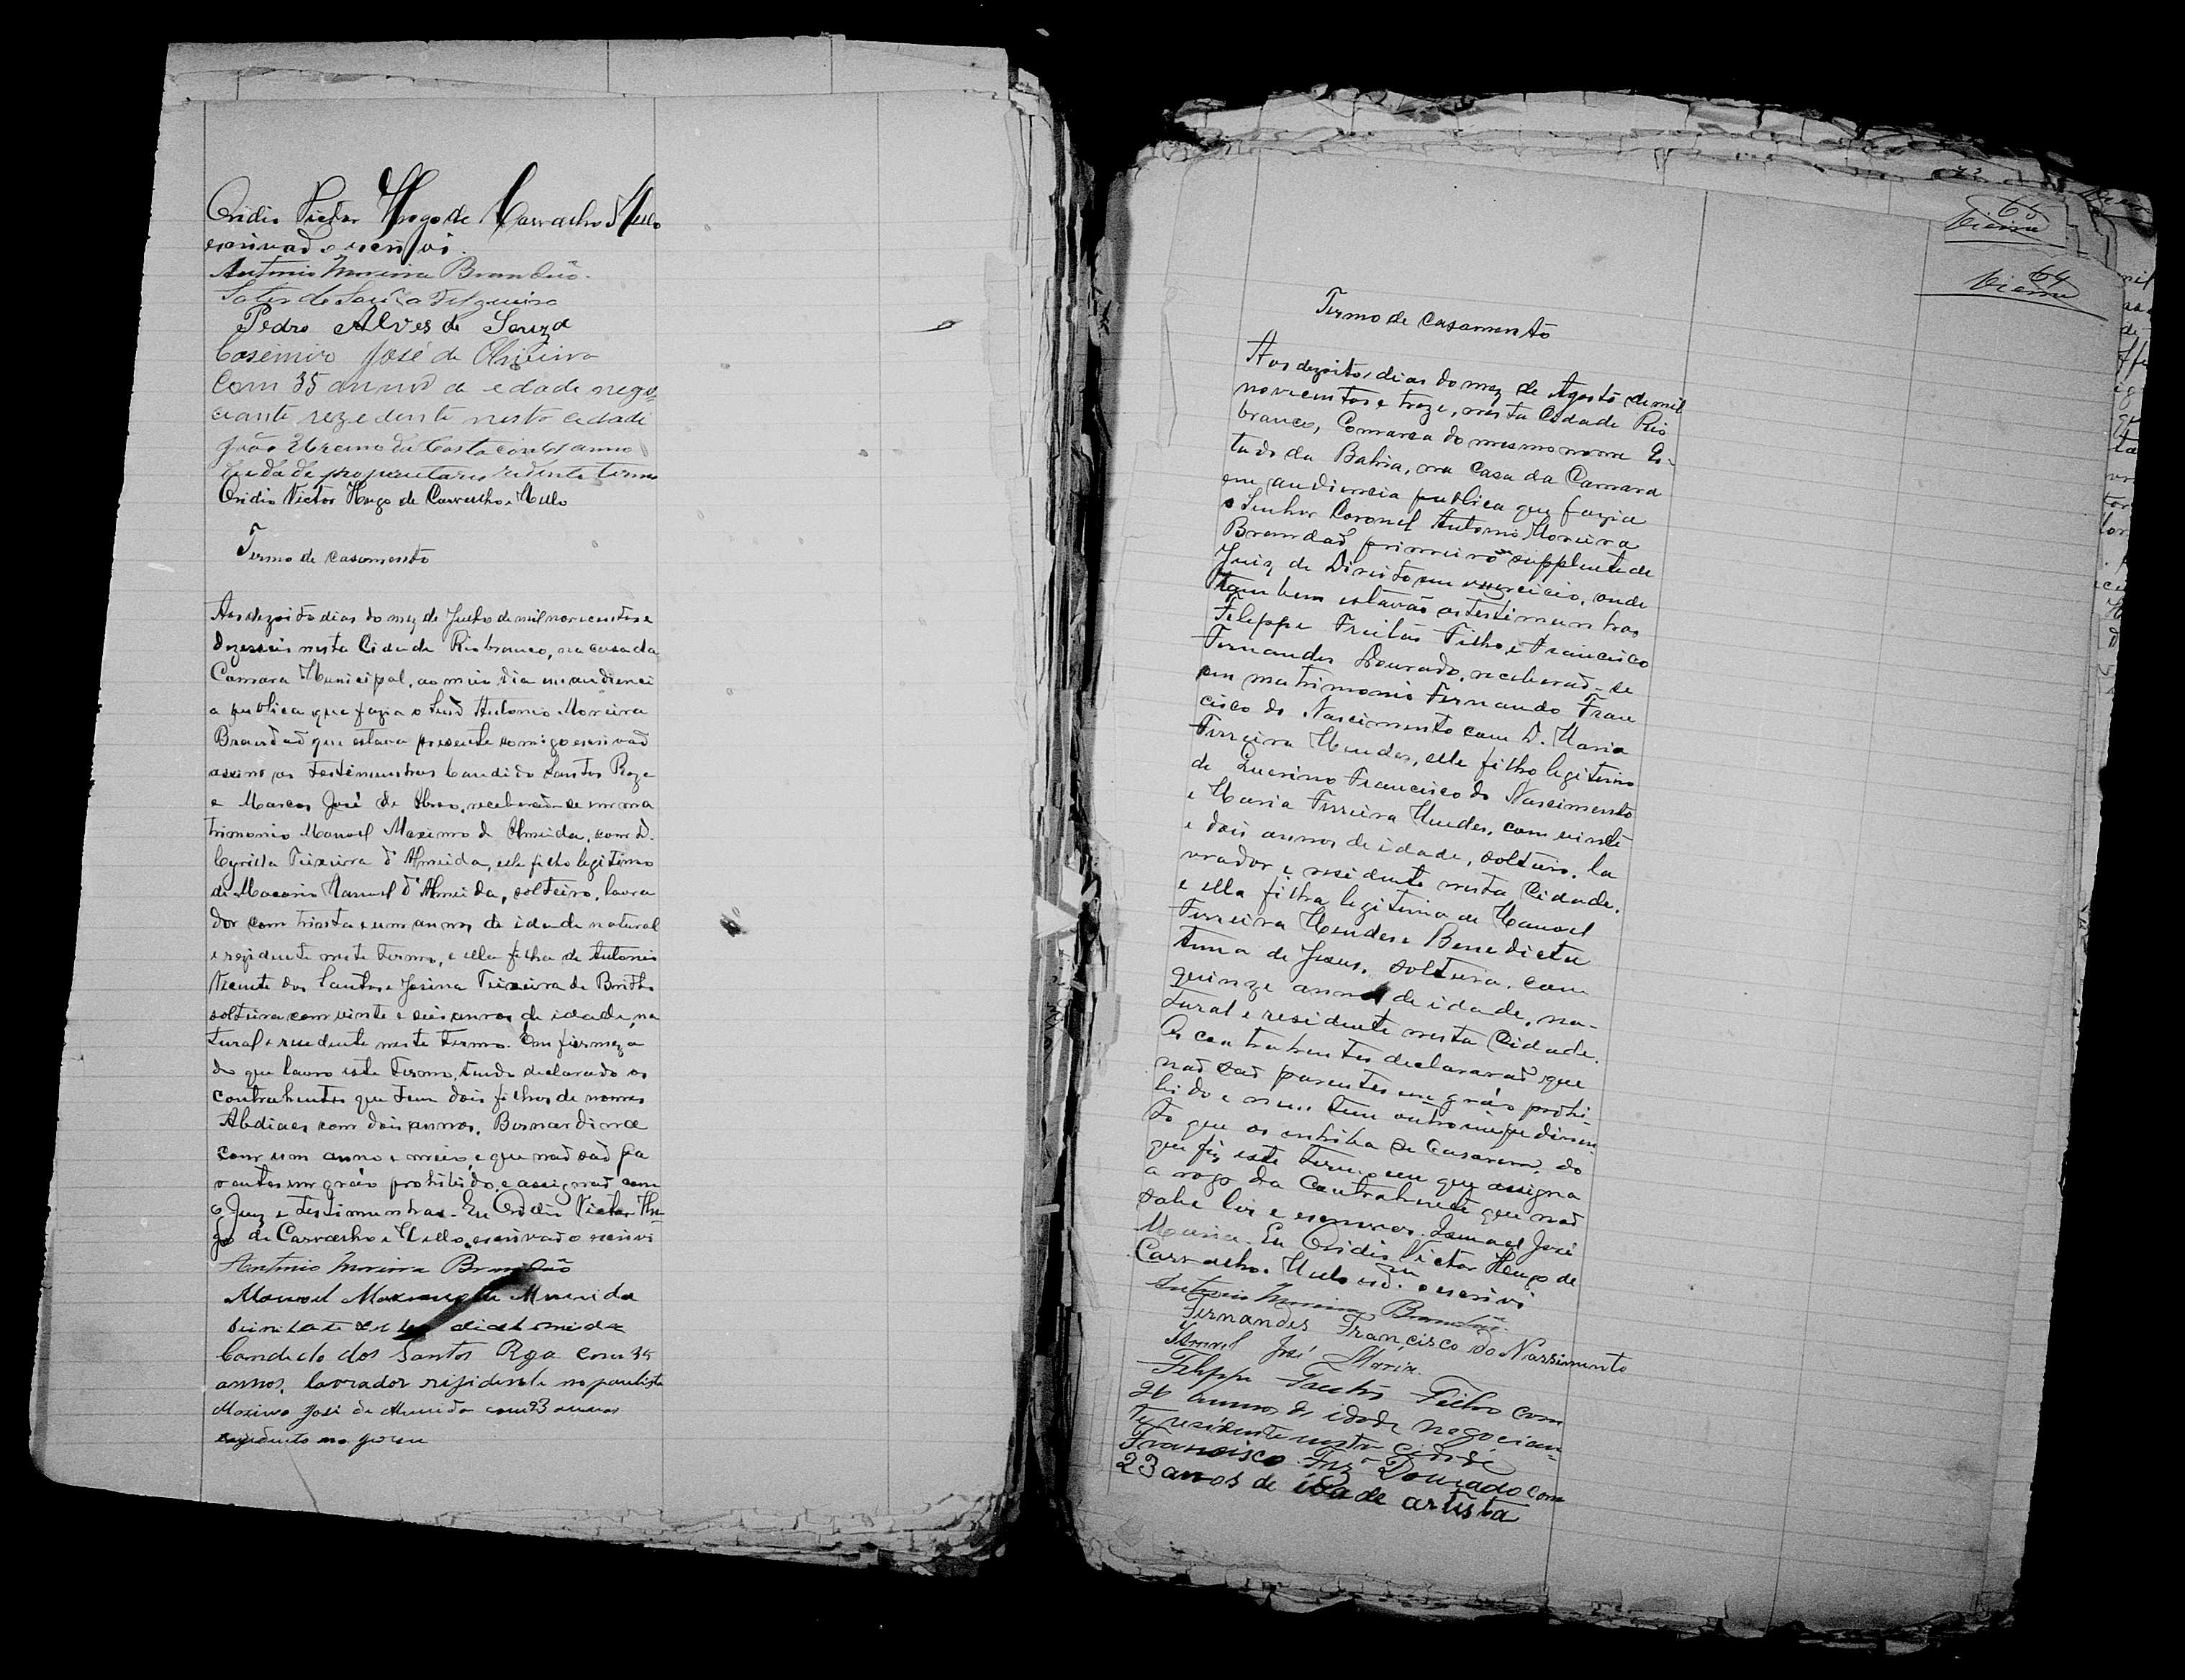 Ovidio Victor Hugo de Carvalho e Mello
escrivão o escrivi
Antonio Moreira Brandão
Pedro Alves de Souza
Casemiro José de Oliveira
Com 35 annos de edade nego
ciante rezedente nesta cidade
João da Costa com 61 anno
Ovidio Victor Hugo de Carvalho e Mello
Termo de casamento
Aos dezoito dias do mez de Julho de mil novecentos e
dezesseis nesta Cidade Rio branco, na casa da
Camara Municipal, ao meio dia em audienci
a publica que fazia o Juiz Antonio Moreira
Brandaõ que estava presente comigo escrivaõ
as testimunhas Candido Santos Roza
e Marcos José de receberaõ-se em ma
trimonio Manoel Maximo d'Almeida, com D.
Cyrilla Teixeira d'Almeida, elle filho legitimo
de Macario Manuel d'Almeida, solteiro, lavra
dor com trinta e um annos de idade natural
e rezidente neste termo, e ella filha de Antonio
Vicente dos Santos e Jesina Teixeira de Britto
solteira com vinte e seis annos de idade, na
tural e residente neste termo. Em firmeza
do que lavro este termo, tendo declarado os
contrahentes que tem dois filhos de nomes
Abdias com dois annos, Bernardina
com um anno e meio, e que naõ saõ pa
rentes em gráo prohibido, e assignaõ com
o Juiz e testimunhas. Eu Ovidio Victor Hu-
go de Carvalho e Mello, escrivaõ o escrivi
Antonio Moreira Brandão
Manoel de Almeida
Candido dos Santos Roza com 35
annos, lavrador risidente no paulista
José de Almeida com 23 annos
65
Vieira
64
Vieira
Termo de casamento
Aos dezoito dias do mez de Agosto de mil
novecentos e treze, nesta Cidade Rio
branco, Comarca do mesmo nome Es-
tado da Bahia, na Casa da Camara
em audiencia publica que fazia
o Senhor Coronel Antonio Moreira
Brandaõ primeiro supplente de
Juiz de Direito em exercicio, onde
tambem estavaõ as testimunhas
Fileppe Freitas Filho, e Francisco
Fernandes Dourado, receberaõ-se
em matrimonio Fernando Fran
cisco do Nascimento com D. Maria
Ferreira Mendes, elle filho legitimo
de Querino Francisco do Nascimento
e Maria Ferreira Mendes, com vinte
e dois annos de idade, solteiro, la
vrador e residente nesta Cidade.
e ella filha legitima de Manoel
Ferreira Mendes e Benedicta
Anna de Jesus, solteira, com
quinze annos de idade, na-
tural e residente nesta Cidade.
Os contrahentes declararaõ que
naõ saõ parentes em gráo prohi-
bido e nem tem outro impedimen
to que os inhiba de casarem, do
que fiz este termo em que assigna
a rogo da Contrahente que naõ
sabe ler e escrever, Ismael José
Maria. Eu Ovidio Victor Hugo de
Carvalho e Mello o escrivi
Antonio Moreira Brandão
Fernandes Francisco do Nassimento
Ismael José Maria
Filippe Freitas Filho com
26 annos de idade negocian-
te residente nesta cidade
Francisco Fnz Dourado com
23 anos de idade artista